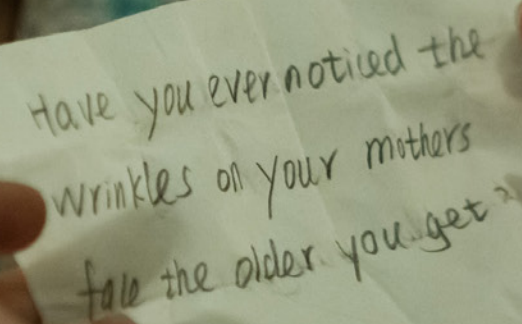 Have you ever noticed the
wrinkles on your mothers
face the older you get?